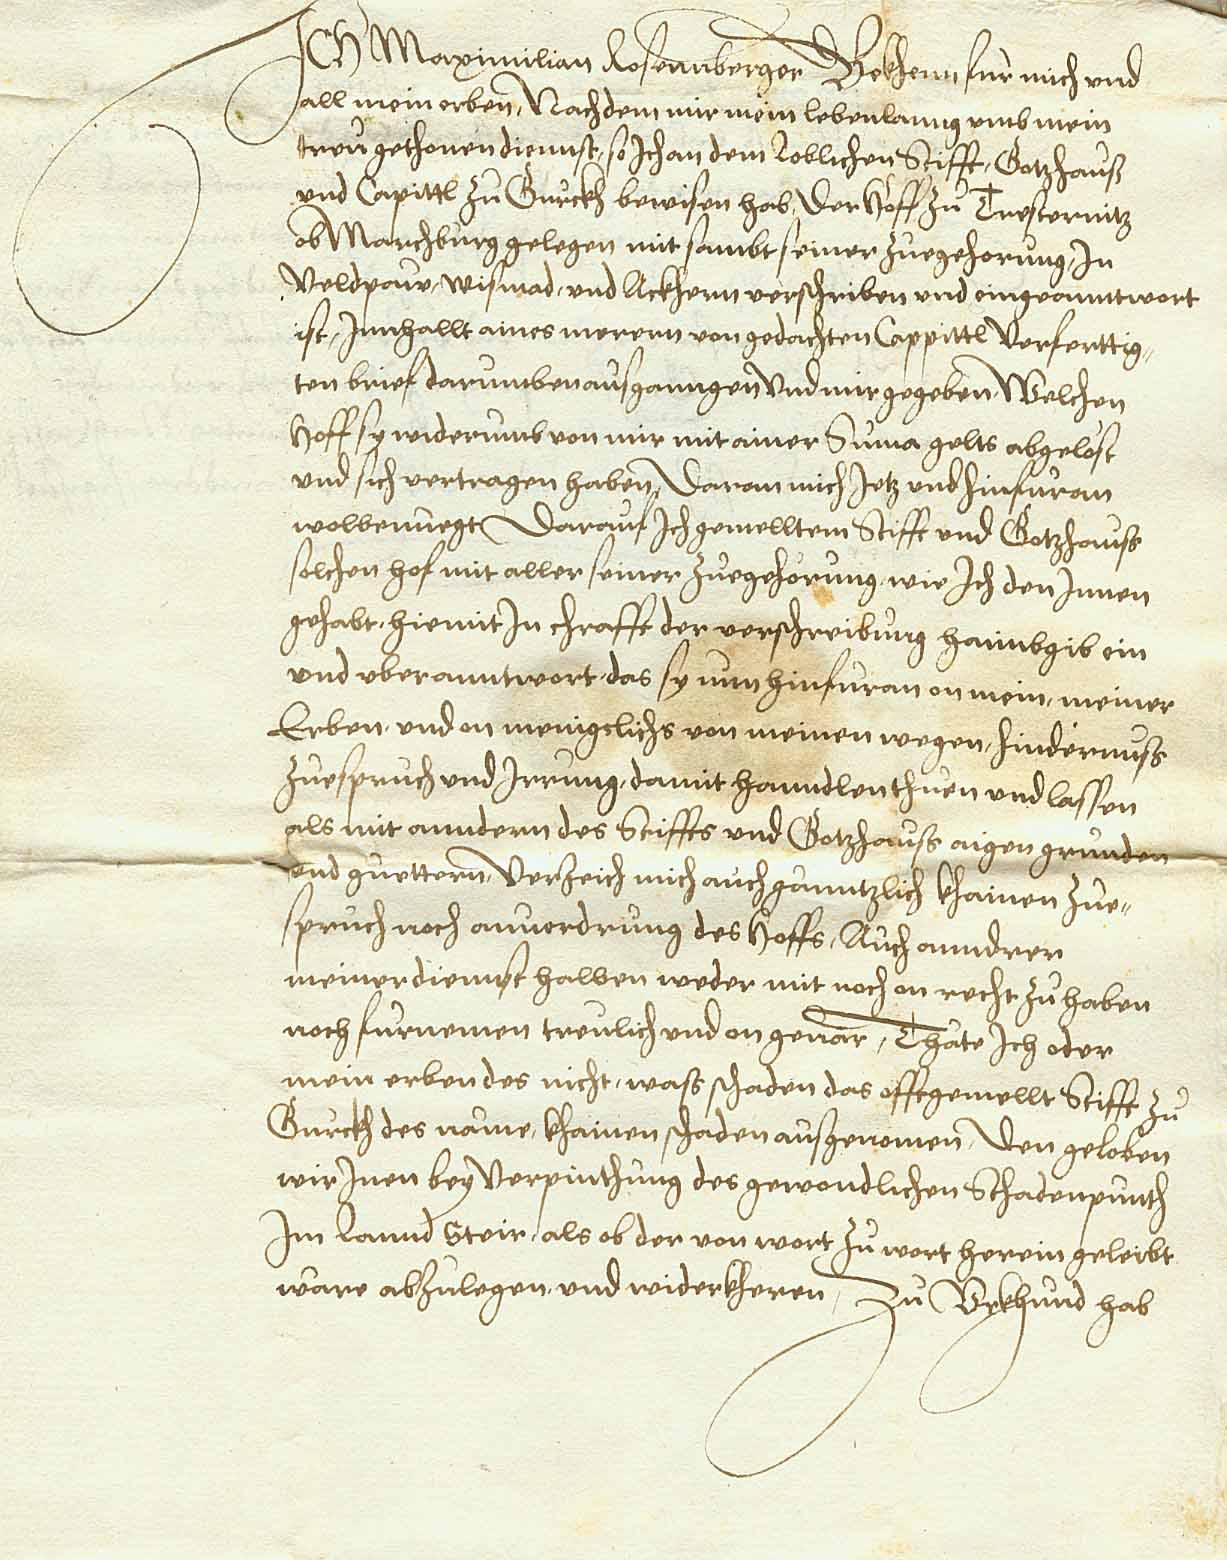 Ich Maximilian Rosennberger Bekhenn fur mich vnd
all mein erben, Nachdem mir mein lebenlanng vmb mein
treu gethonen diennst, so Ich an dem Loblichen Stifft, Gotzhauß
vnd Capittl zu Gurckh bewisen hab, Der Hoff zu Tresternitz
ob Marchburg gelegen mit sambt seiner zuegehorung, In
Veldpauw, wismad, vnd Ackhern verschriben vnd eingeanntwort
ist, Innhallt aines merern von gedachten Cappittl Verferttig„
ten brief darumben ausganngen Vnd mir gegeben, Welchen
Hoff sy widerumb von mir mit ainer Suma gelts abgelöst
vnd sich vertragen haben, Daran mich Jetz vnd hinfuran
wolbenuegt, Darauf Ich gemelltem Stifft vnd Gotzhauss
solchen hof mit aller seiner zuegehörung, wie Ich den Innen
gehabt, hiemit In chrafft der verschreibung haimbgib ein
vnd vberanntwort, das sy nun hinfuran on mein, meiner
Erben, vnd on menigclichs von meinen wegen, hindernuss
zuespruch vnd Irrung, damit hanndlen thuen vnd lassen
als mit anndern des Stiffts vnd Gotzhauss aigen grunden
vnd guettern, Verzeich mich auch ganntzlich khainen zue„
spruch noch anuordrung des Hoffs, Auch anndrer
meiner diennst halben weder mit noch on recht zu haben
noch furnemen treulich vnd on geuär, Thäte Ich oder
mein erben des nicht, wass schaden das offtgemellt Stifft zu
Gurckh des näme, khainen schaden ausgenomen, Den geloben
wir Inen bey Verpinthung des gewondlichen Schadenpunth
Im Lannd Steir, als ob der von wort zu wort herein geleibt
wäre abzulegen, vnd widerkheren, Zu Vrkhund hab